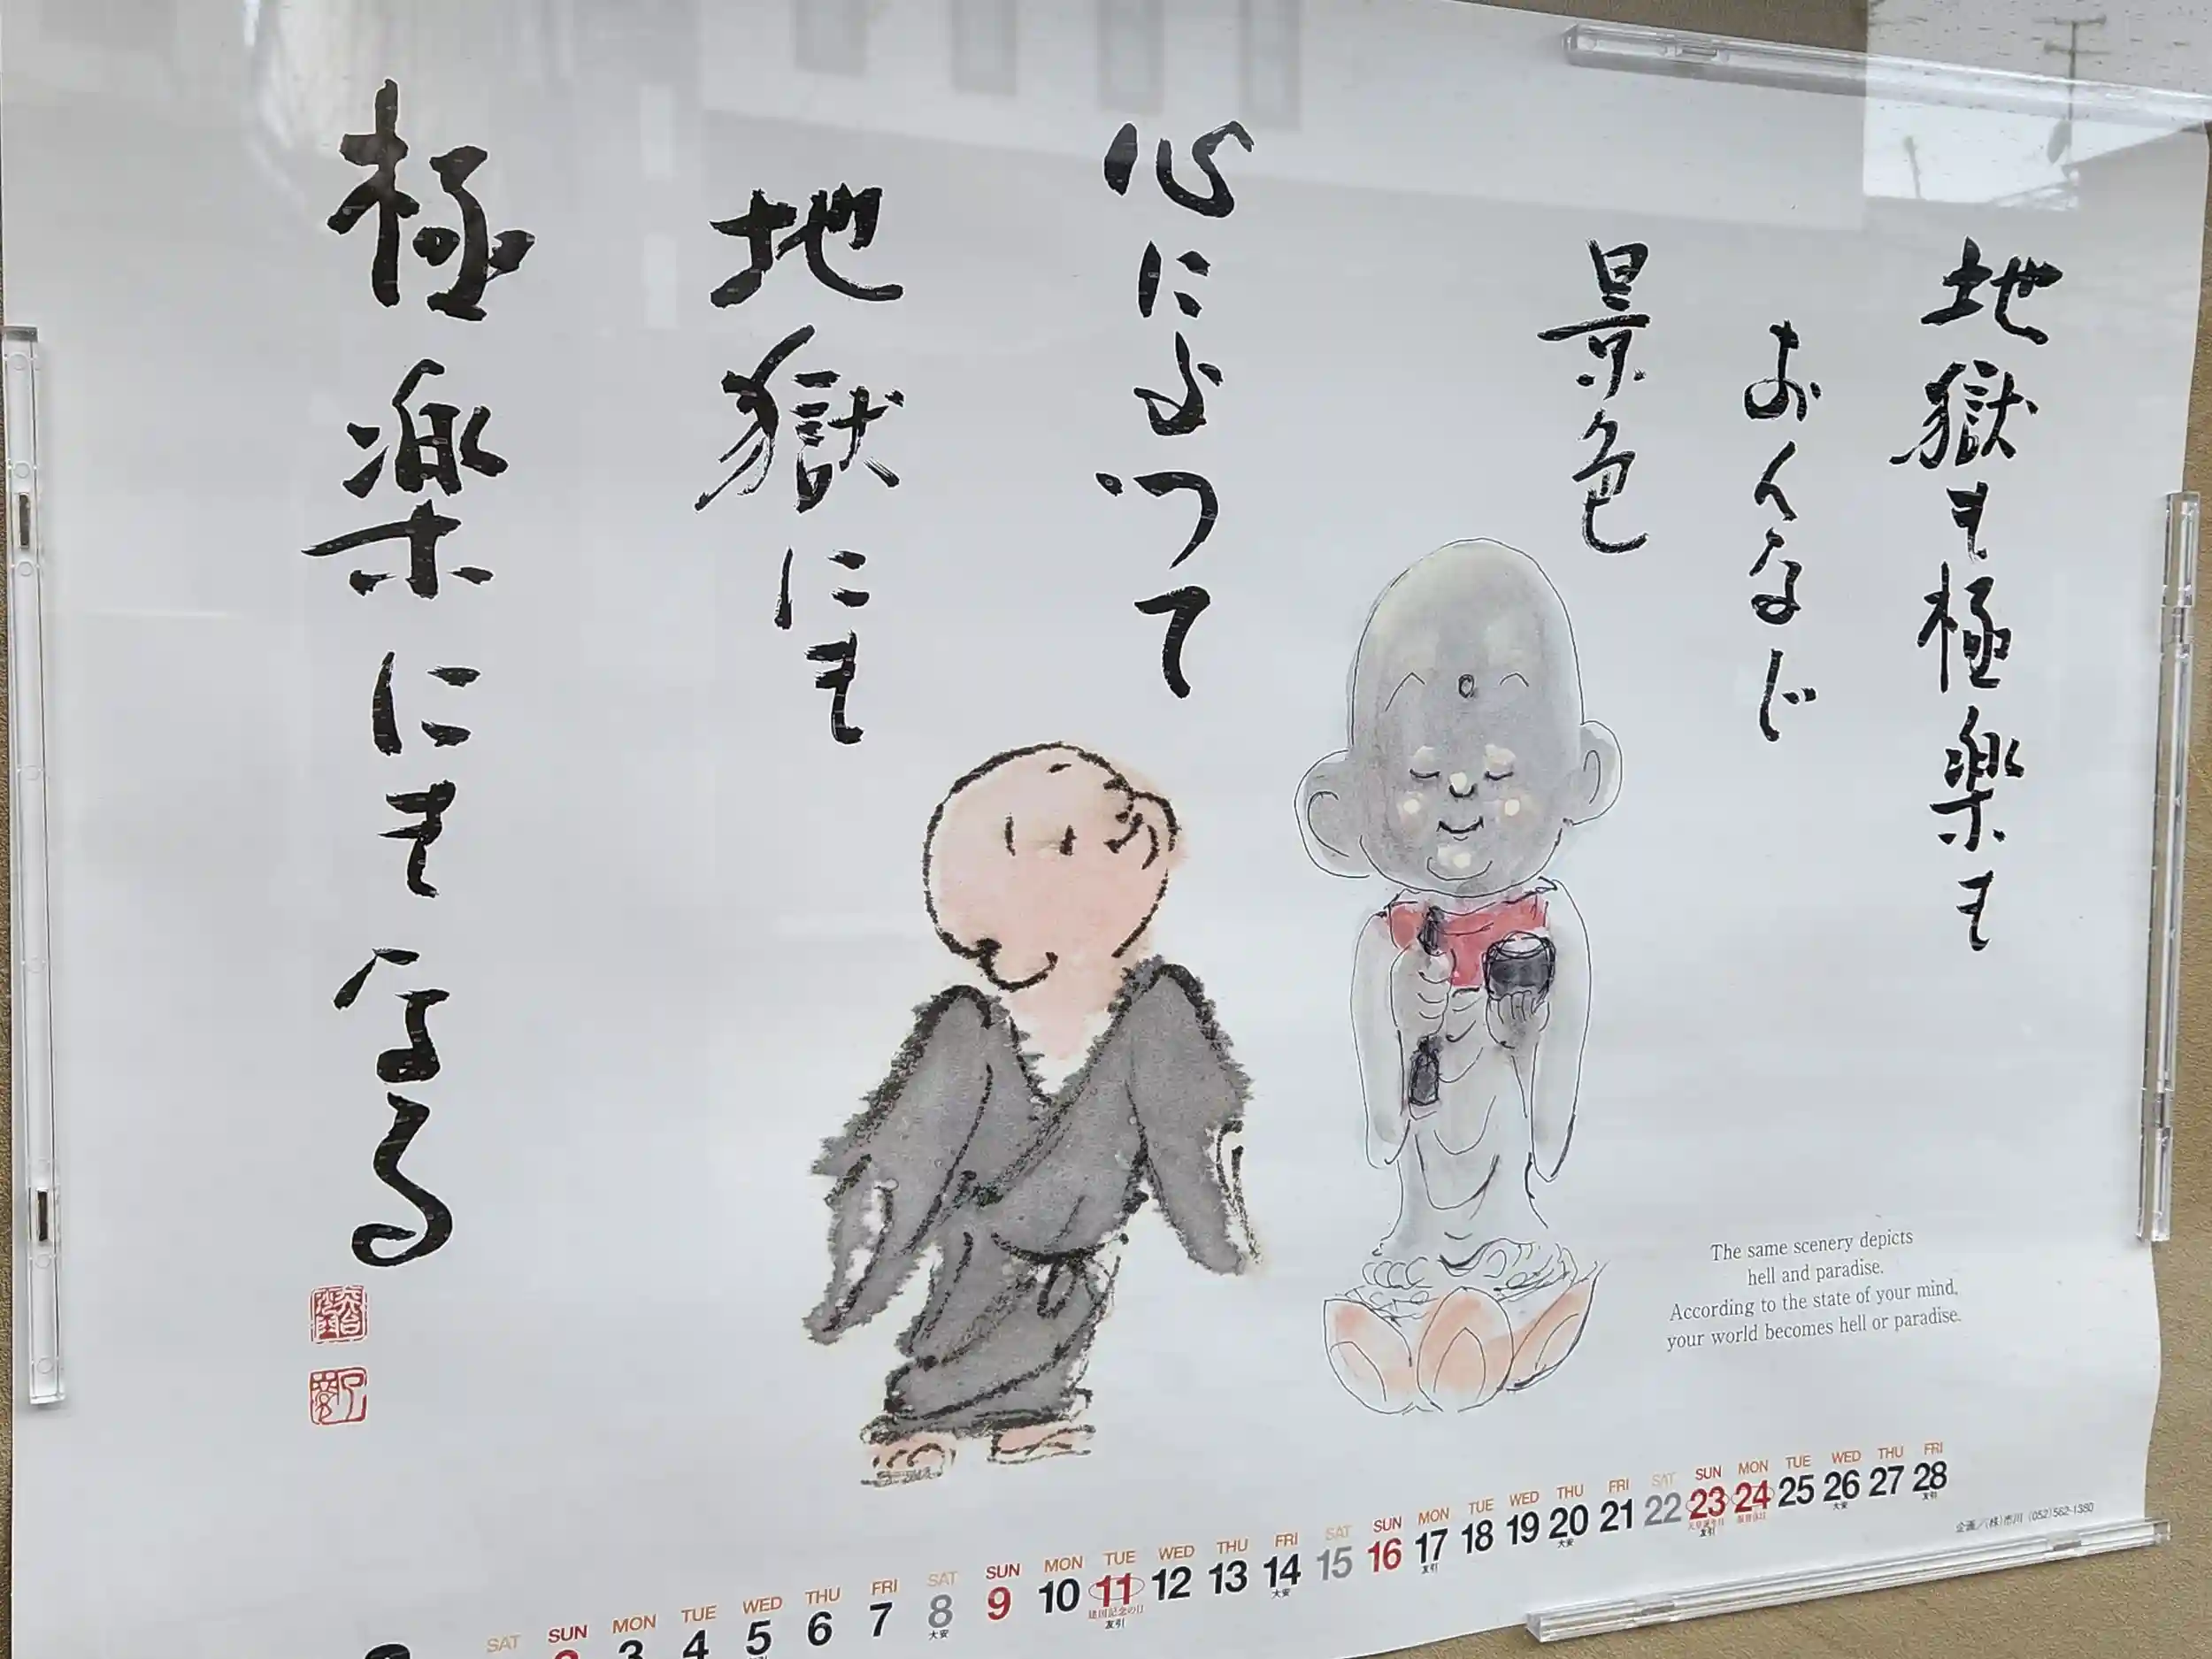 地獄も極楽も
おんなじ
景色
心によって
地獄にも
極楽にもなる
The same scenery depicts
hell and paradise.
According to the state of your mind,
your world becomes hell or paradise.
SAT SUN MON TUE WED THU FRI SAT SUN MON TUE WED THU FRI SAT SUN MON TUE WED THU FRI SAT SUN MON TUE WED THU FRI
3 4 5 6 7 8 9 10 11 12 13 14 15 16 17 18 19 20 21 22 23 24 25 26 27 28
大安 建国記念の日 友引 大安 友引 大安 天皇誕生日 友引 振替休日 大安 友引
企画/(株)市川 (052)562-1380